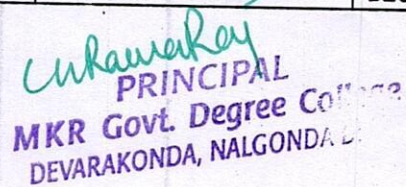 PRINCIPAL
MKR Govt. Degree College
DEVARAKONDA, NALGONDA